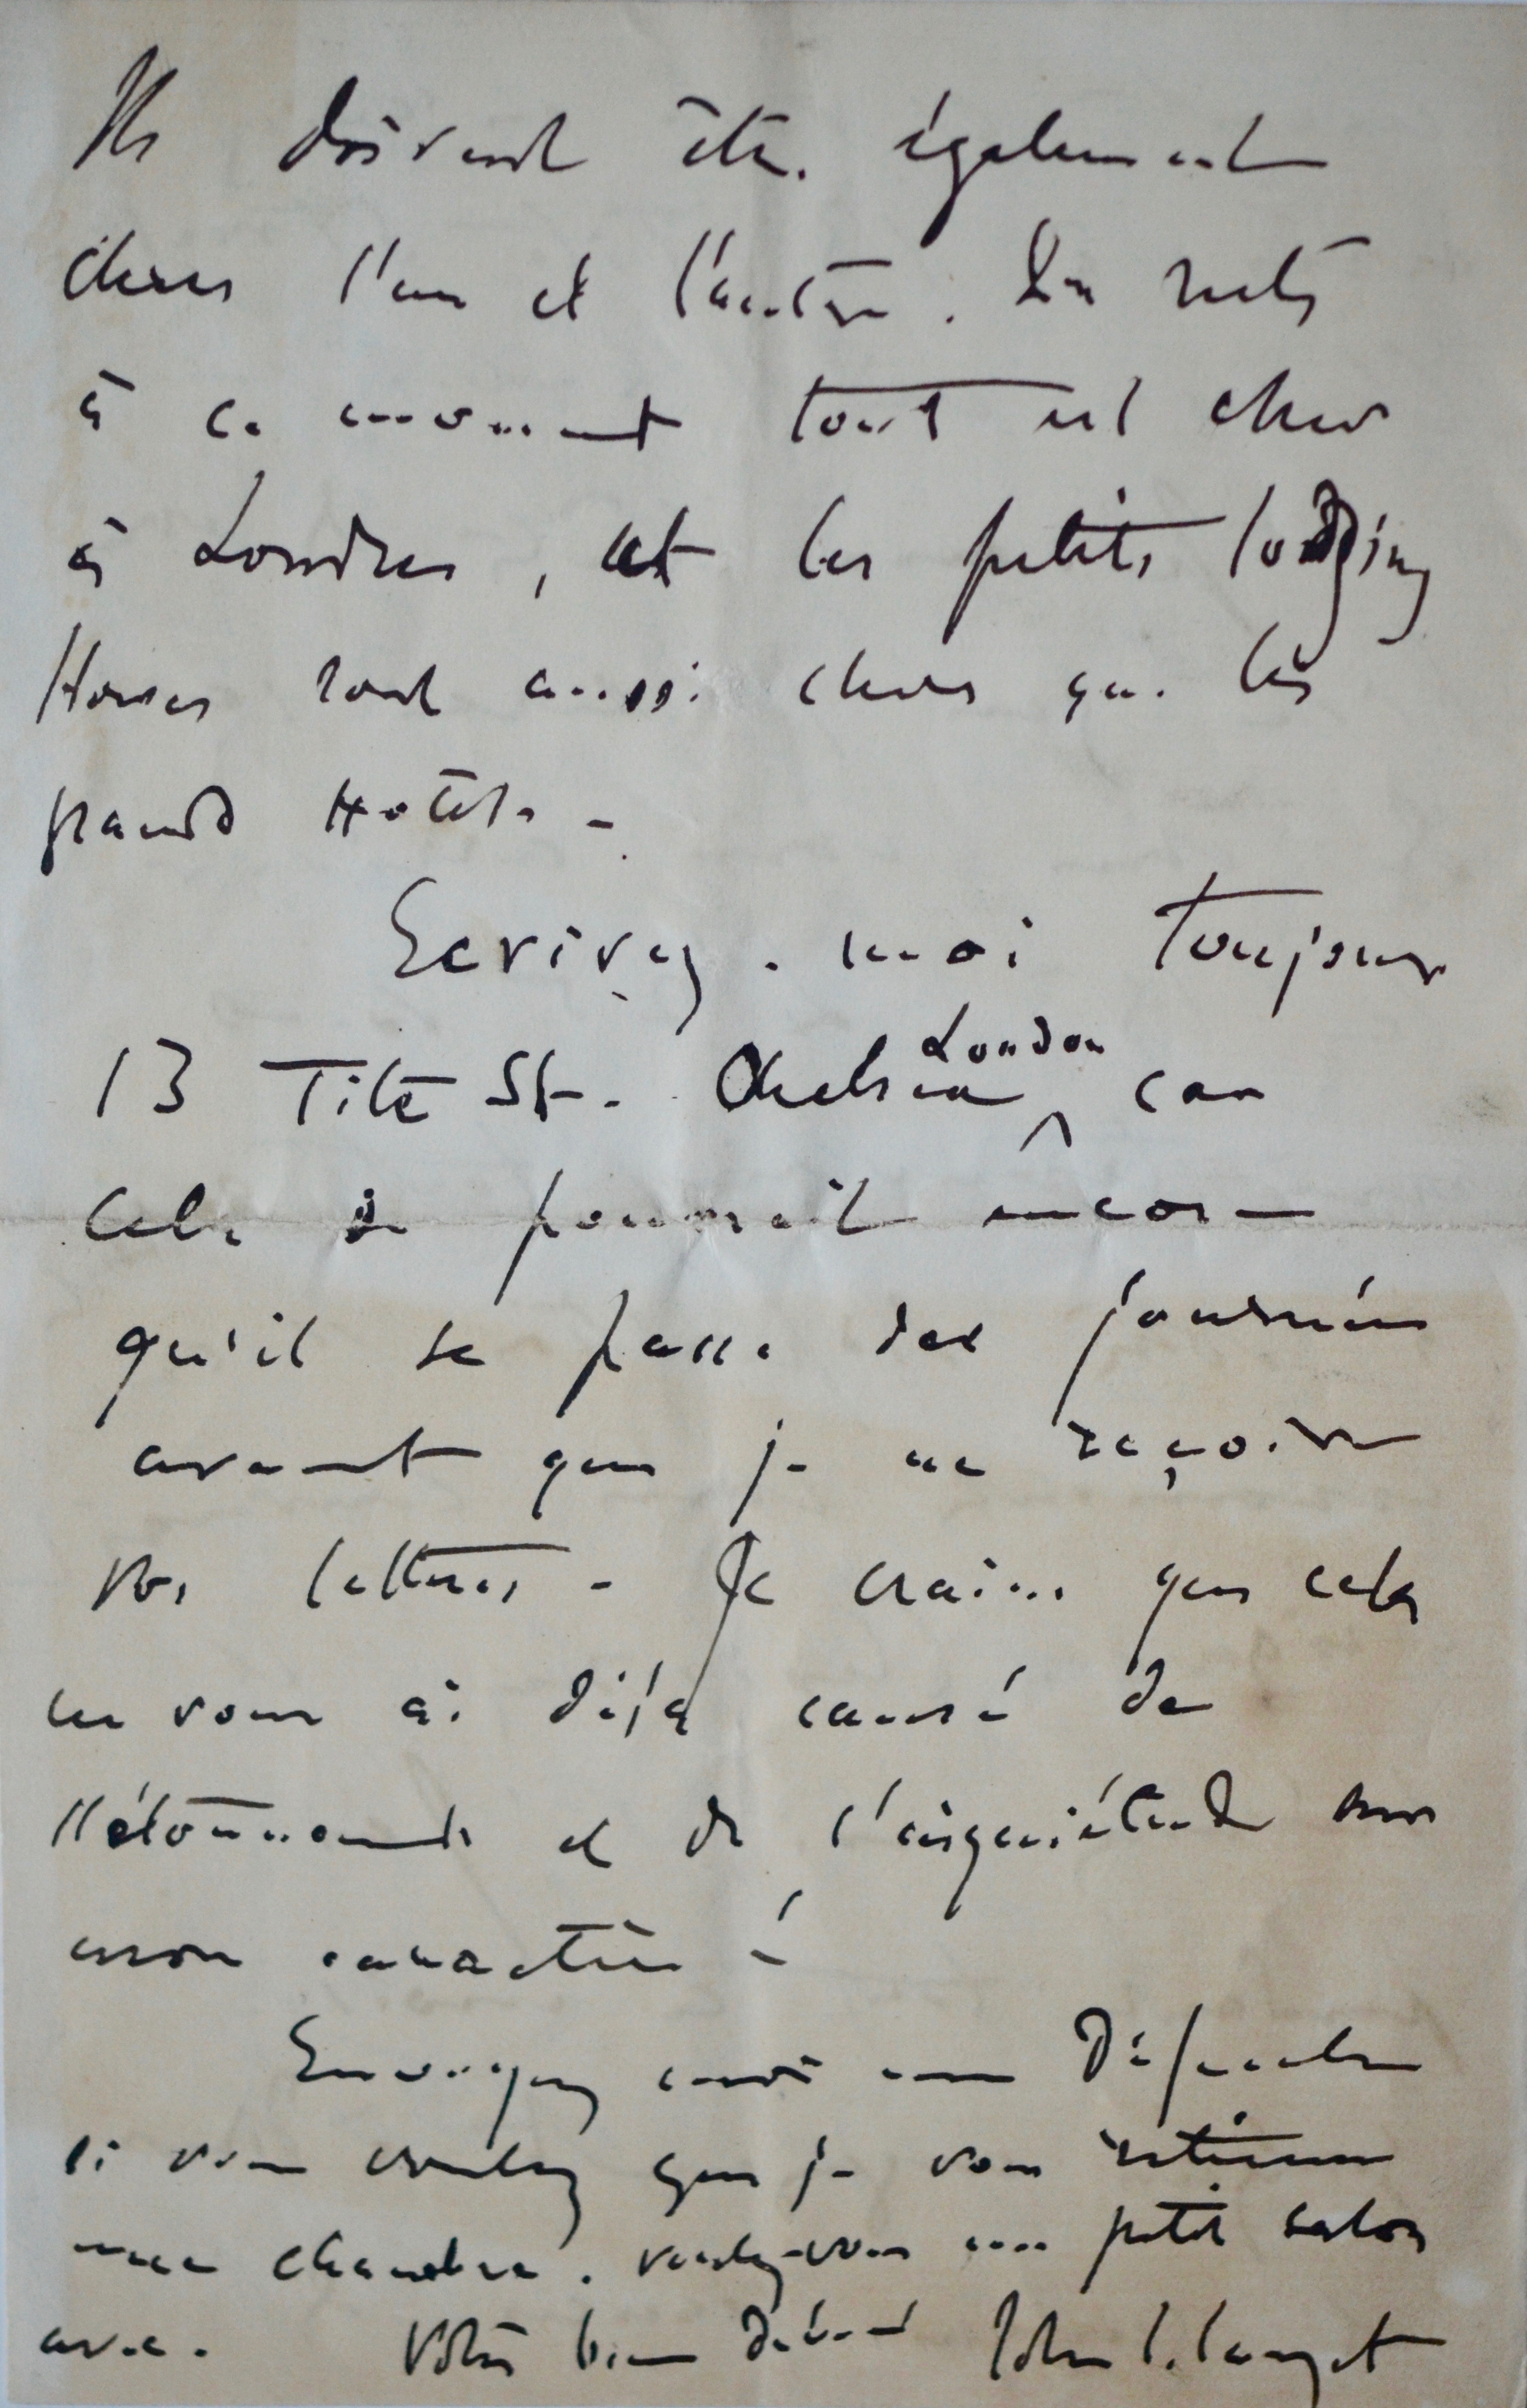 Ils doivent être également
chers l'un et l'autre. Du reste
à ce moment tout est cher
à Londres, et les petits lodging
Houses sont aussi chers que les
grands Hôtels -
Ecrivez-moi toujours
13 Tite St. Chelsea London car
cela se pourrait encore
qu'il se passe des journées
avant que je ne reçoive
vos lettres - Je crains que cela
ne vous ai déjà causé de
l'étonnement et de l'inquiétude sur
mon caractère!
Envoyez moi une Dépêche
si vous voulez que je vous retienne
une chambre. voulez-vous un petit salon
avec. Votre bien dévoué John S. Sargent